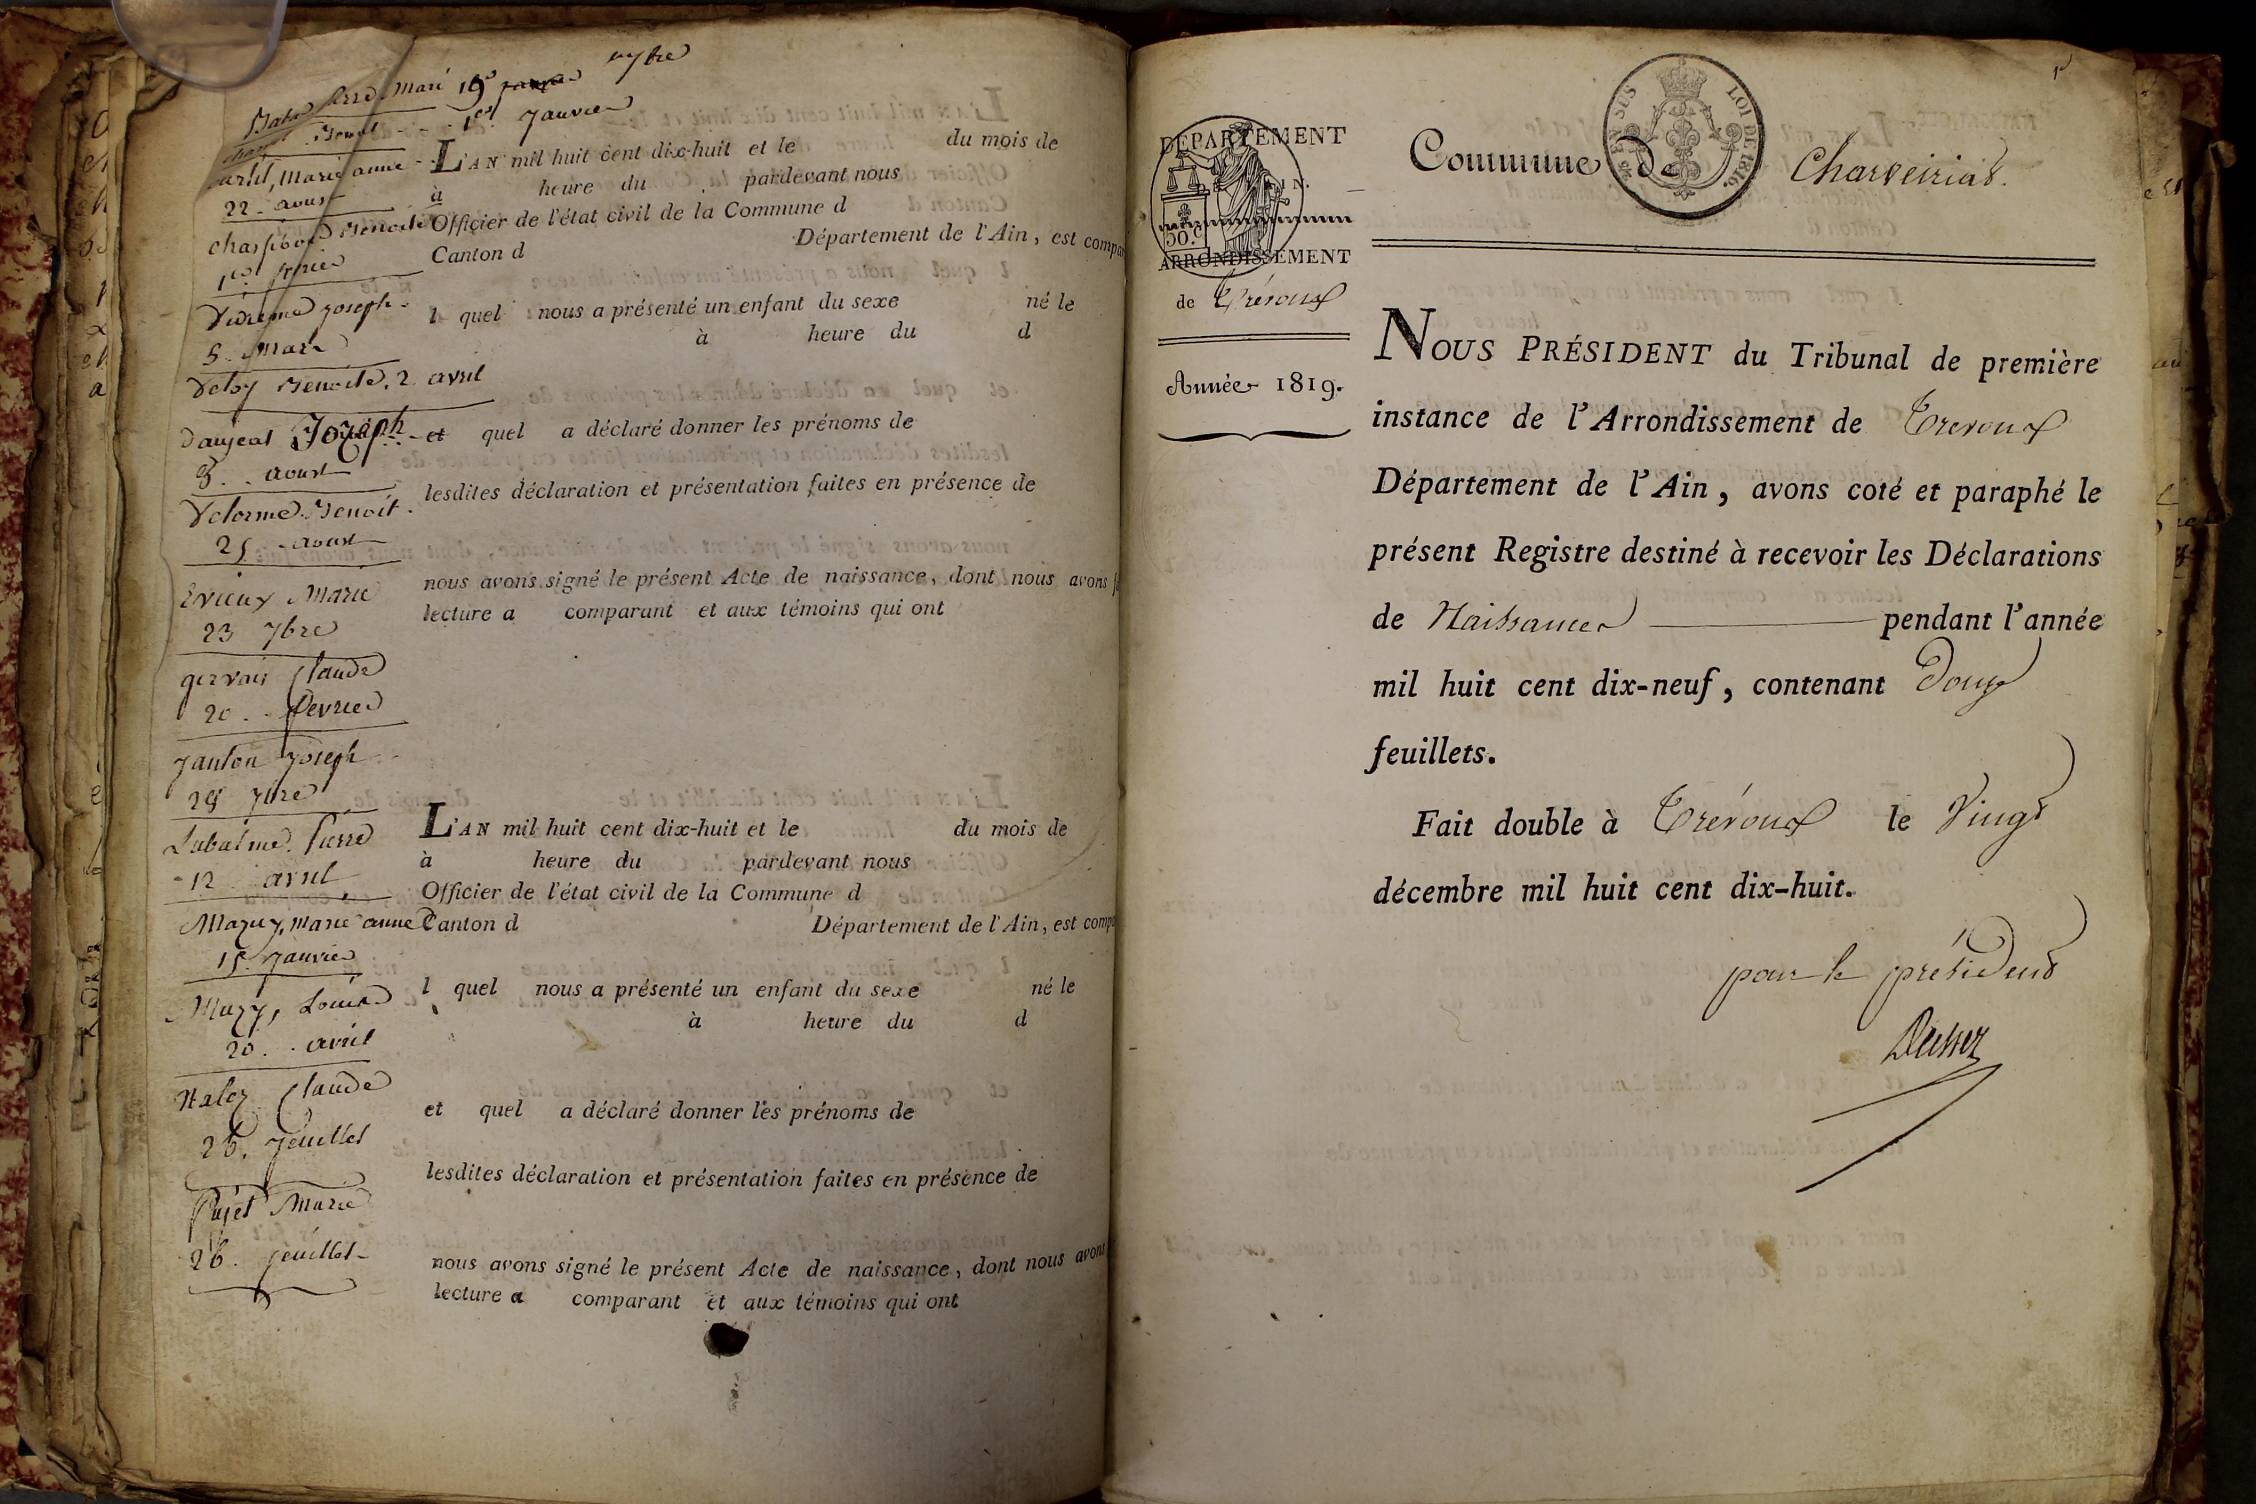 9bre
Pierre Mari 19e
1er Janvier
Marie anne
22. aoust
Benoite
1er
Joseph
5. Mars
Benoite. 2 avril
Joseph
8. aoust
Delorme Benoit
25. aoust
Evieux Marie
23 7bre
gervais Claude
20. fevrier
Janton Joseph
28 7bre
Labalme Pierre
12 avril
Mazuy, marie anne
15. Janvier
Mazuy, Louise
20. avril
Nalez Claude
26. Jeuillet
Pujet Marie
26. jeuillet
L'AN mil huit cent dix-huit et le du mois de
à heure du pardevant nous
Officier de l'état civil de la Commune d
Canton d Département de l'Ain, est compar
l quel nous a présenté un enfant du sexe né le
à heure du d
et quel a déclaré donner les prénoms de
lesdites déclaration et présentation faites en présence de
nous avons signé le présent Acte de naissance, dont nous avons
lecture a comparant et aux témoins qui ont
L'AN mil huit cent dix-huit et le du mois de
à heure du pardevant nous
Officier de l'état civil de la Commune d
Canton d Département de l'Ain, est comp
l quel nous a présenté un enfant du sexe né le
à heure du d
et quel a déclaré donner les prénoms de
lesdites déclaration et présentation faites en présence de
nous avons signé le présent Acte de naissance, dont nous avons
lecture a comparant et aux témoins qui ont
1er
DÉPARTEMENT
DE L'AIN.
50.c
ARRONDISSEMENT
de Trévoux
Année 1819.
EN SUS
LOI DE 1816
Commune de Charveiriat.
NOUS PRÉSIDENT du Tribunal de première
instance de l'Arrondissement de Trevoux
Département de l'Ain, avons coté et paraphé le
présent Registre destiné à recevoir les Déclarations
de Naissances pendant l'année
mil huit cent dix-neuf, contenant Douze
feuillets.
Fait double à Trévoux le Vingt
décembre mil huit cent dix-huit.
pour le président